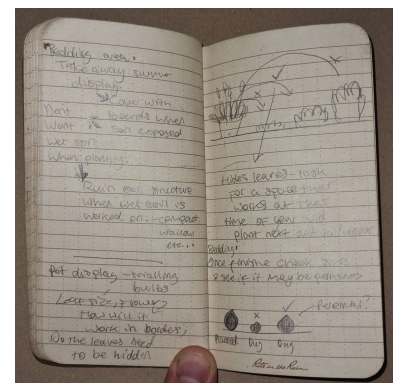 Bedding area:
Take away summer
display
Cover with
boards when
soil exposed
Dont
want
wet soil
when planting.
Ruin soil structure
when wet soil is
worked on. - compact,
etc..
Pot display - trailing
bulbs
Leaf size, flower
How will it
work in border,
Do the leaves need
to be hidden
Hides leaves - look
for a space that
works at that
time of year and
plant next
Bedding:
Once finished check size
& see if it may be perennial
Perennial?
Dug
Dug
Rite in the Rain